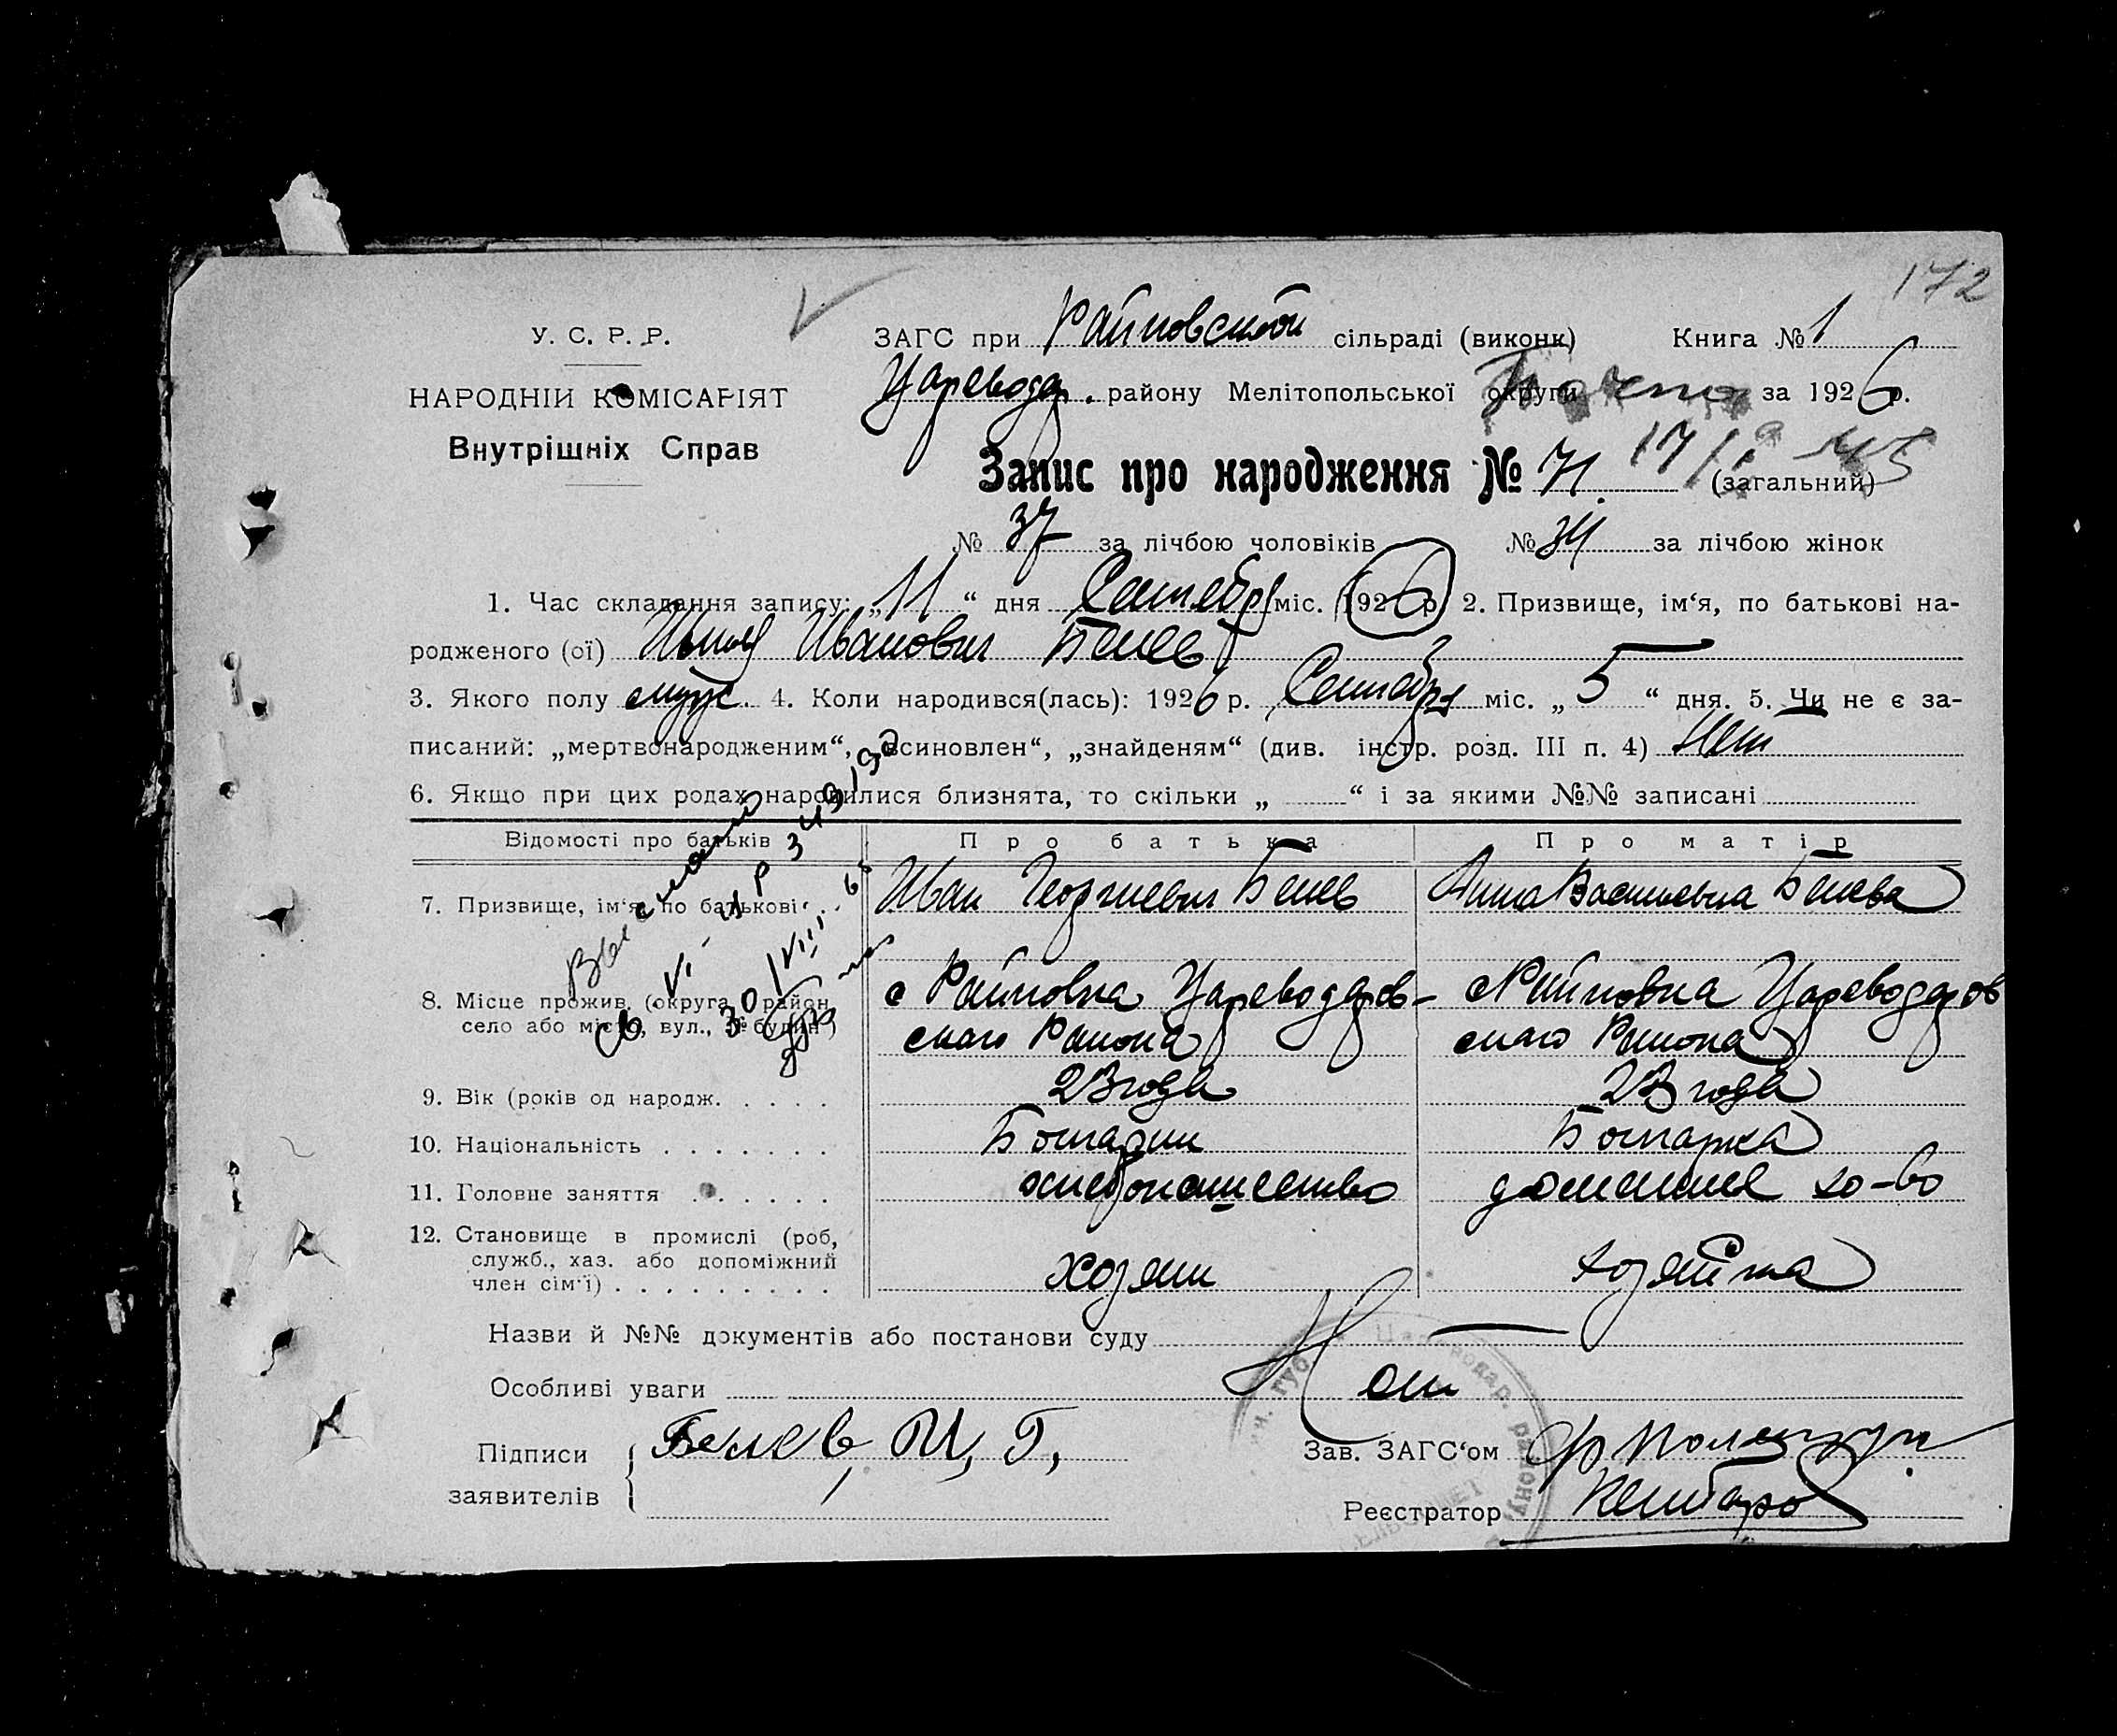 172
У. С. Р. Р.
НАРОДНІЙ КОМІСАРІЯТ
Внутрішніх Справ
ЗАГС при Райновской сільраді (виконк) Книга № 1
Цареводар. району Мелітопольської округи за 1926 р.
Запис про народження № 71. (загальний)
№ 37 за лічбою чоловіків № 34 за лічбою жінок
1. Час складання запису: „11“ дня Сентебря міс. 1926 р. 2. Призвище, ім‘я, по батькові на-
родженого (ої) Илья Иванович Белев
3. Якого полу муж. 4. Коли народився(лась): 1926 р. Сентебря міс. „5“ дня. 5. Чи не є за-
писаний: „мертвонародженим“, „всиновлен“, „знайденям“ (див. інстр. розд. III п. 4) Нет
6. Якщо при цих родах народилися близнята, то скільки „ “ і за якими №№ записані
Відомості про батьків Про батька Про матір
7. Призвище, ім‘я, по батькові Иван Георгиевич Белев Анна Васильевна Белева
8. Місце прожив. (округа, район, с Райновка Цареводаров- с Райновка Цареводаров
село або місто, вул., № будин.) скаго Раиона скаго Раиона
9. Вік (років од народж. 23 года 23 года
10. Національність Болгарин Болгарка
11. Головне заняття хлебопашество домашнее хо-во
12. Становище в промислі (роб,
служб., хаз. або допоміжний
член сім‘ї) хозяин хозяйка
Висланий
св. VI-УР 343130
30/VIII-65
Назви й №№ документів або постанови суду
Особливі уваги Нет
Підписи Белев, И, Г,
заявителів
Зав. ЗАГС‘ом
Реєстратор